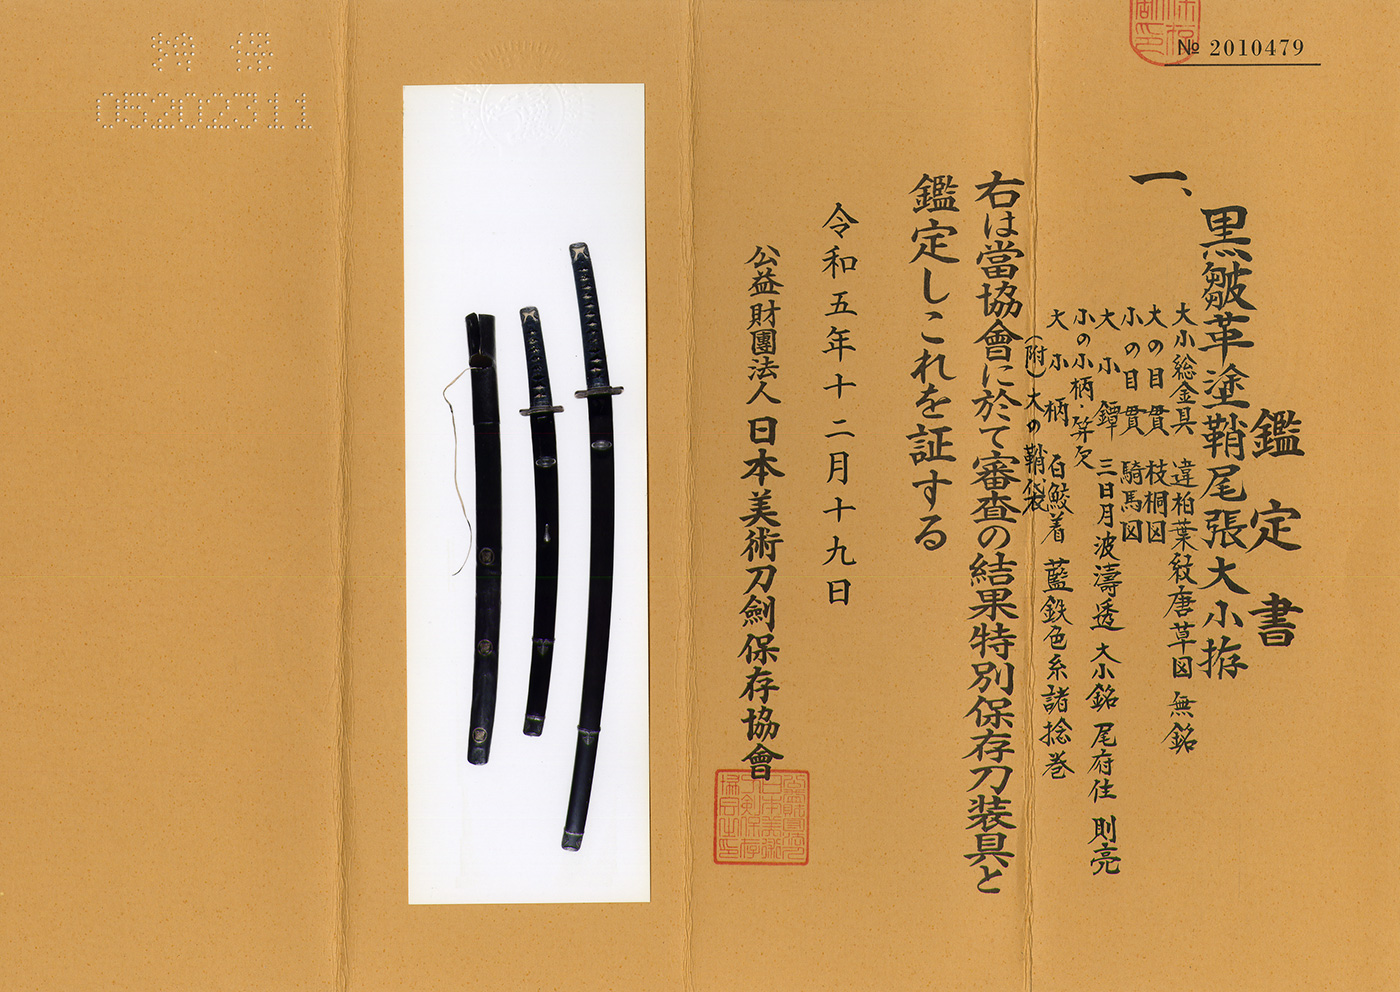 № 2010479
鑑定書
一、黒皺革塗鞘尾張大小拵
大小総金具 違柏葉紋唐草図 無銘
大の目貫 枝桐図
小の目貫 騎馬図
大小鐔 三日月波濤透 大小銘 尾府住 則亮
小の小柄・笄欠
大小柄 白鮫着 藍鉄色糸諸捻巻
（附）大の鞘袋
右は當協會に於て審査の結果特別保存刀装具と
鑑定しこれを証する
令和五年十二月十九日
公益財團法人 日本美術刀劍保存協會
特保
05202311